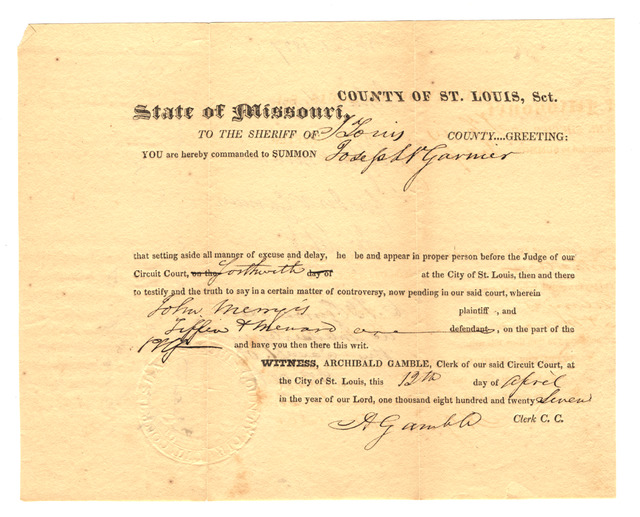 COUNTY OF ST. LOUIS, Sct.
State of Missouri,
TO THE SHERIFF OF St Louis COUNTY....GREETING:
YOU are hereby commanded to SUMMON Joseph V Garnier
that setting aside all manner of excuse and delay, he be and appear in proper person before the Judge of our
Circuit Court, on the forthwith day of at the City of St. Louis, then and there
to testify and the truth to say in a certain matter of controversy, now pending in our said court, wherein
John Merry is plaintiff , and
Tiffin & Menard are defendants, on the part of the
and have you then there this writ.
WITNESS, ARCHIBALD GAMBLE, Clerk of our said Circuit Court, at
the City of St. Louis, this 12th day of April
in the year of our Lord, one thousand eight hundred and twenty Seven
A Gamble Clerk C. C.